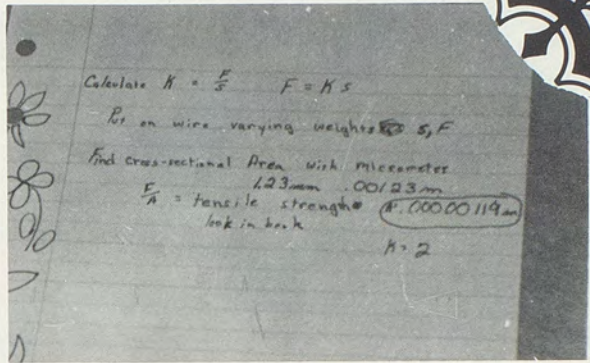 Calculate K = F/s F = K s
Put on wire varying weights s, F
Find cross-sectional Area with micrometer
1.23mm .00123m
F/A = tensile strength A=.00000119m
look in book
K= 2